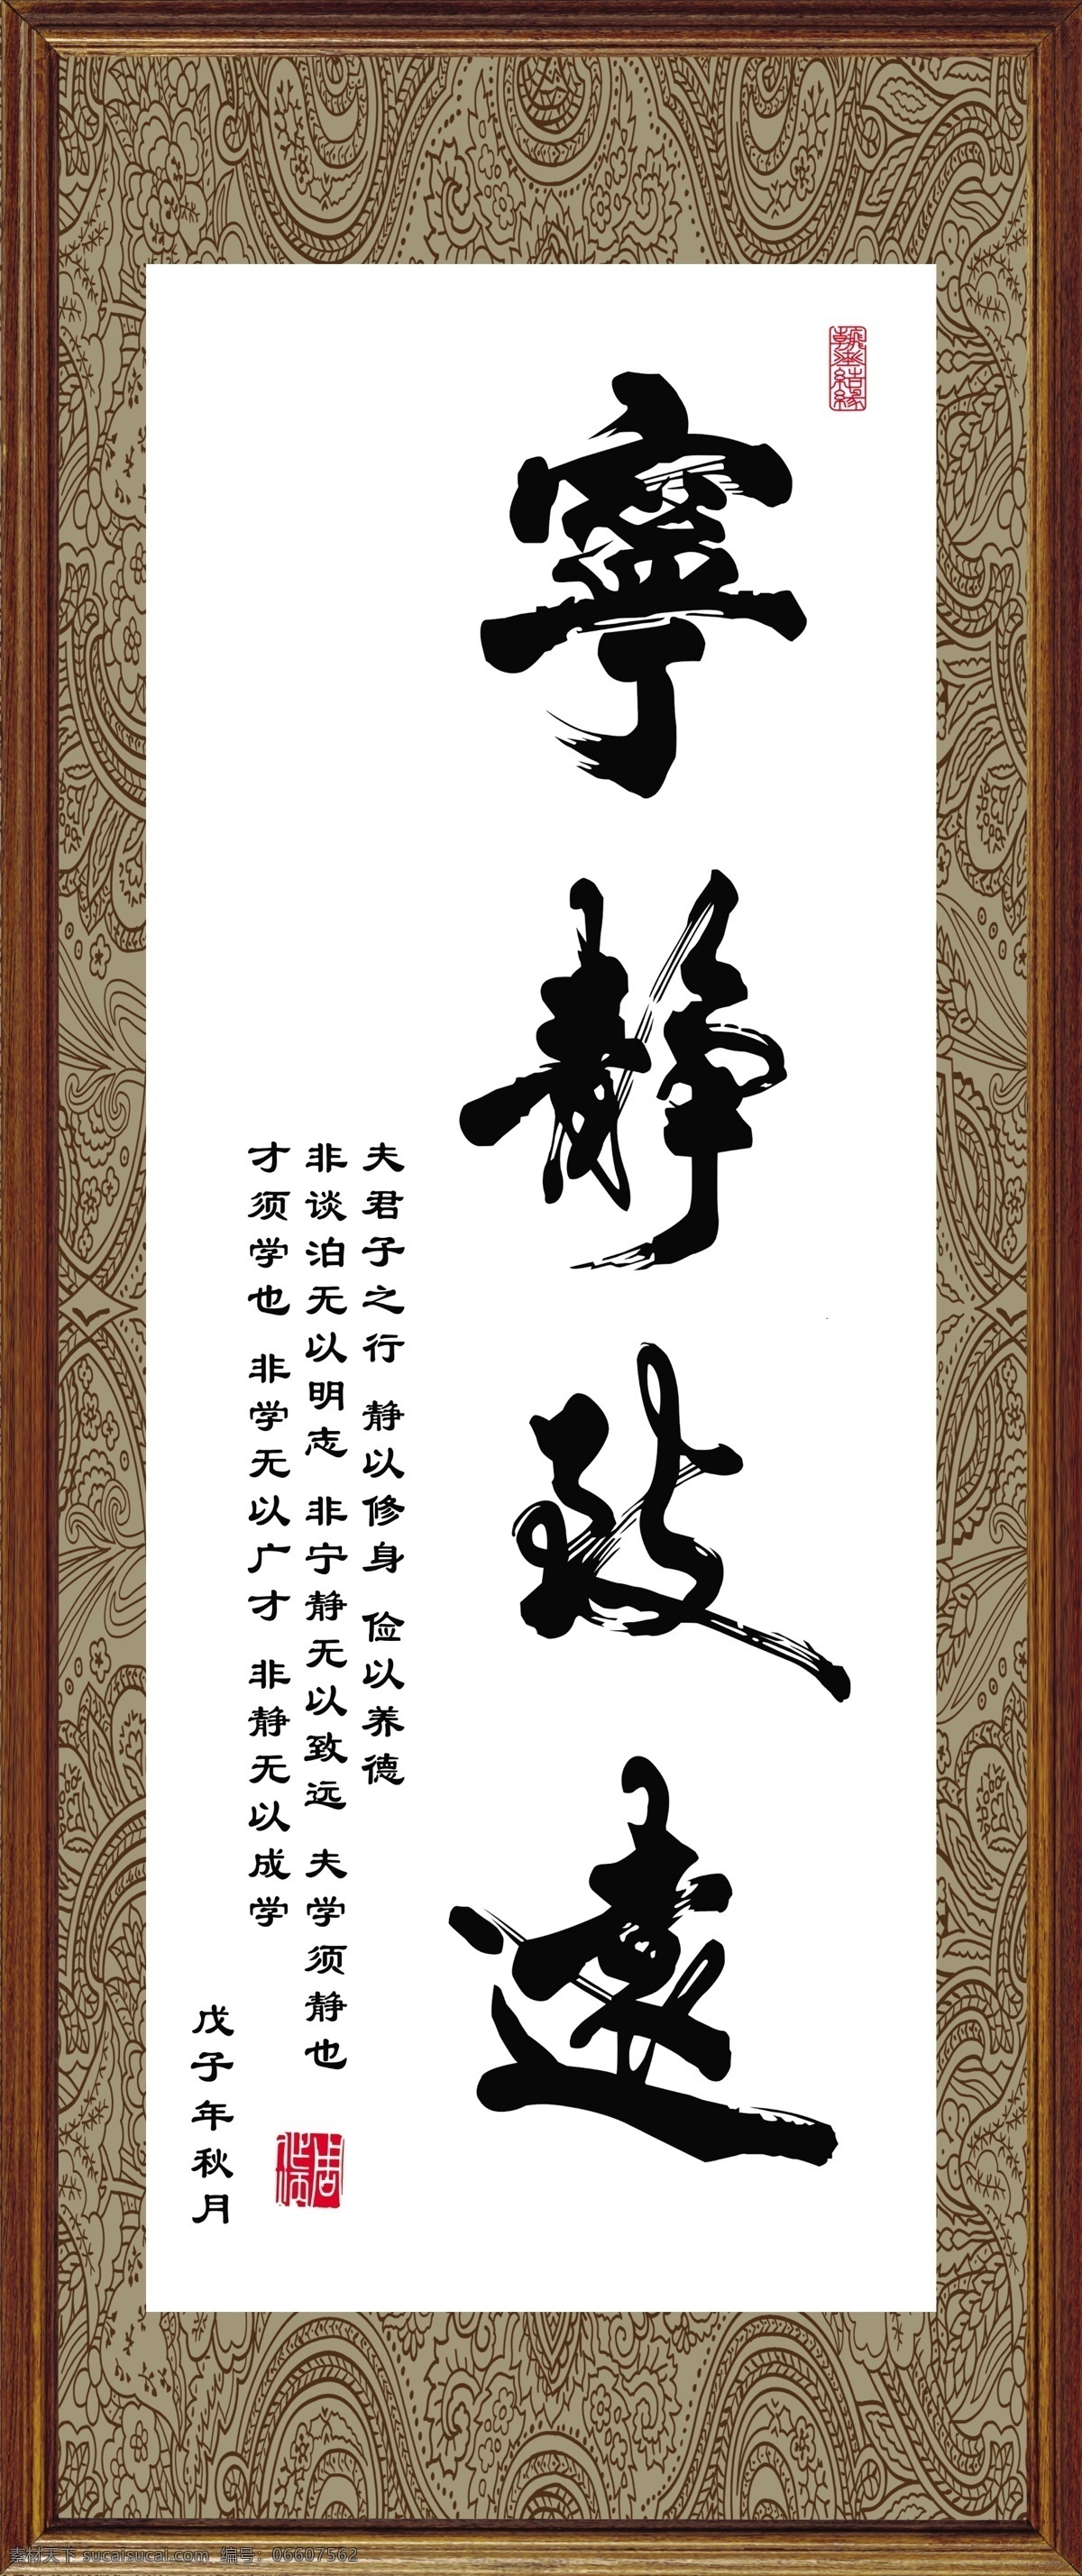 寧靜致遠
夫君子之行 静以修身 俭以养德
非谈泊无以明志 非宁静无以致远 夫学须静也
才须学也 非学无以广才 非静无以成学
戊子年秋月
翰墨結緣
素材天下 sucaisucai.com 编号：06607562